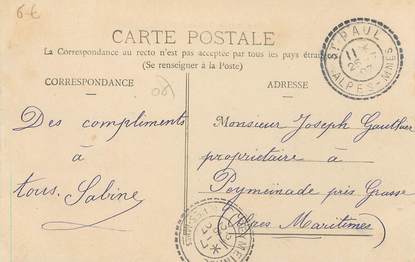 6 €
CARTE POSTALE
La Correspondance au recto n'est pas acceptée par tous les pays étran
(Se renseigner à la Poste)
CORRESPONDANCE
ADRESSE
ST PAUL
11
ALPES-MMES
Des compliments
à
tous. Sabine
Monsieur Joseph Gauthier
propriétaire à
Peymeinade près Grasse
Alpes Maritimes